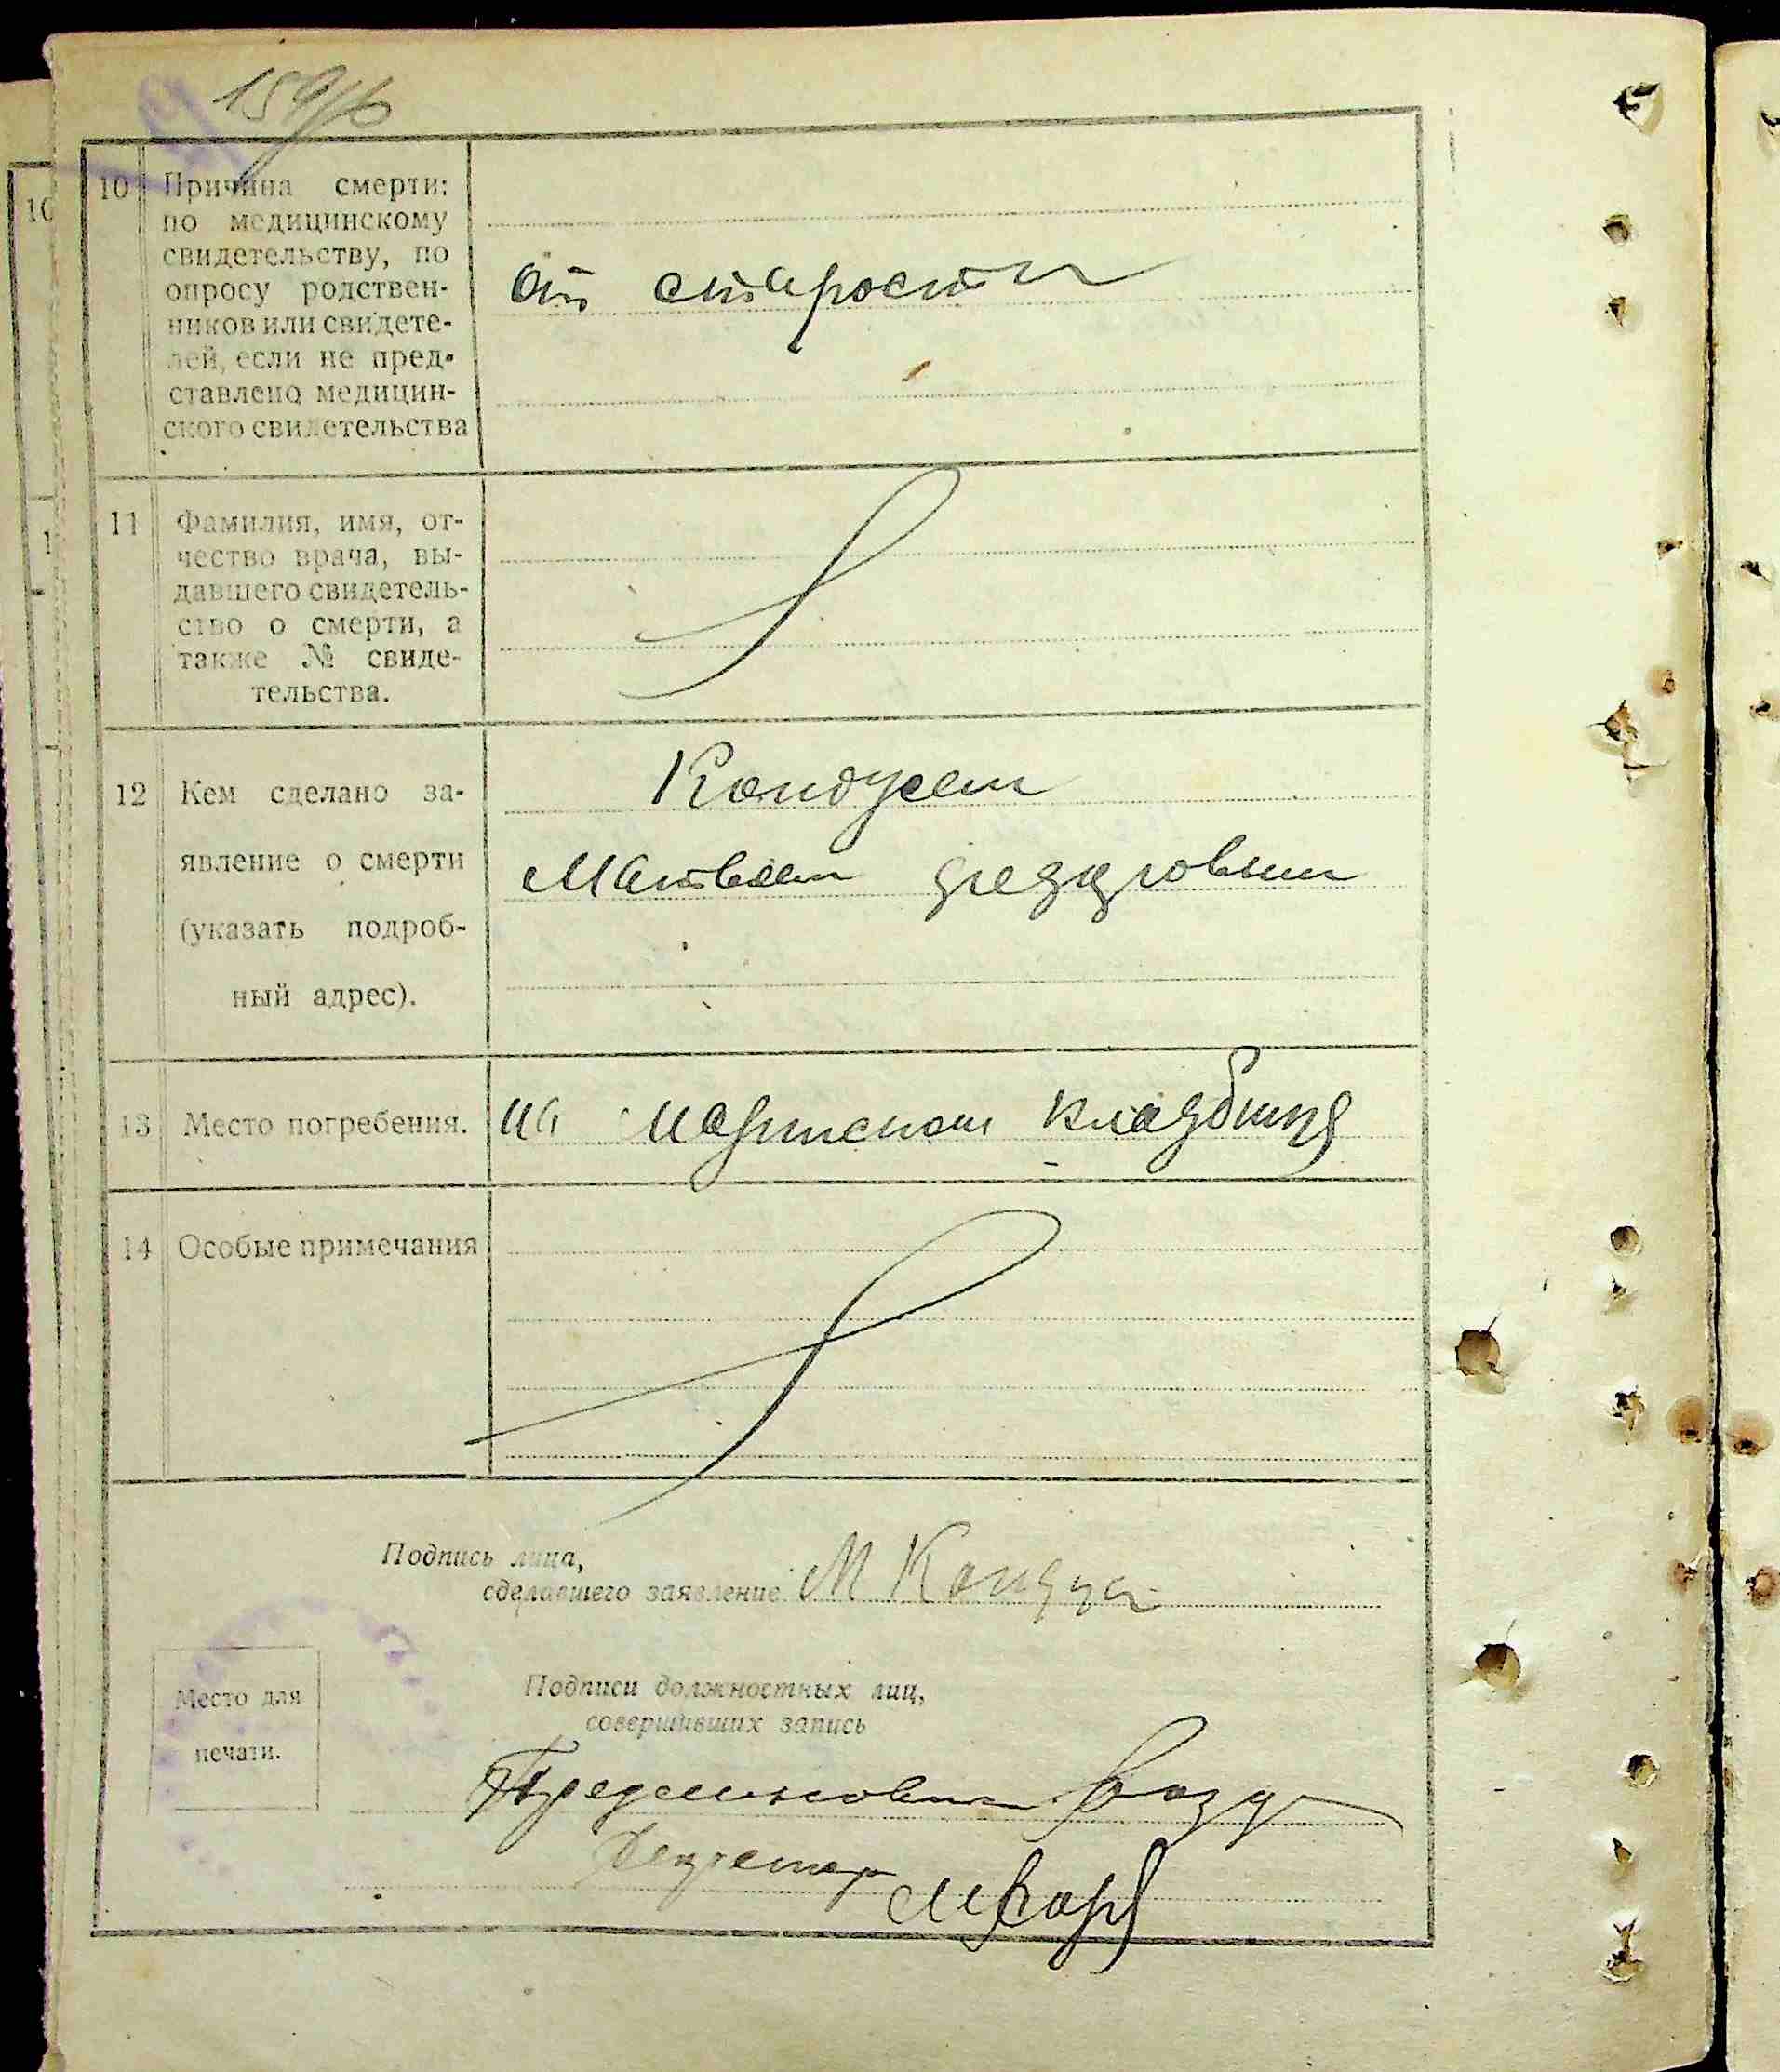 159/б
10 Причина смерти:
по медицинскому
свидетельству, по
опросу родствен-
ников или свидете-
лей, если не пред-
ставлено медицин-
ского свидетельства
От старости
11 Фамилия, имя, от-
чество врача, вы-
давшего свидетель-
ство о смерти, а
также № свиде-
тельства.
12 Кем сделано за-
явление о смерти
(указать подроб-
ный адрес).
Кондусем
Матвеем
13 Место погребения.
на кладбище
14 Особые примечания
Подпись лица,
сделавшего заявление М Кондус
Место для
печати.
Подписи должностных лиц,
совершивших запись
Секретар
10
1